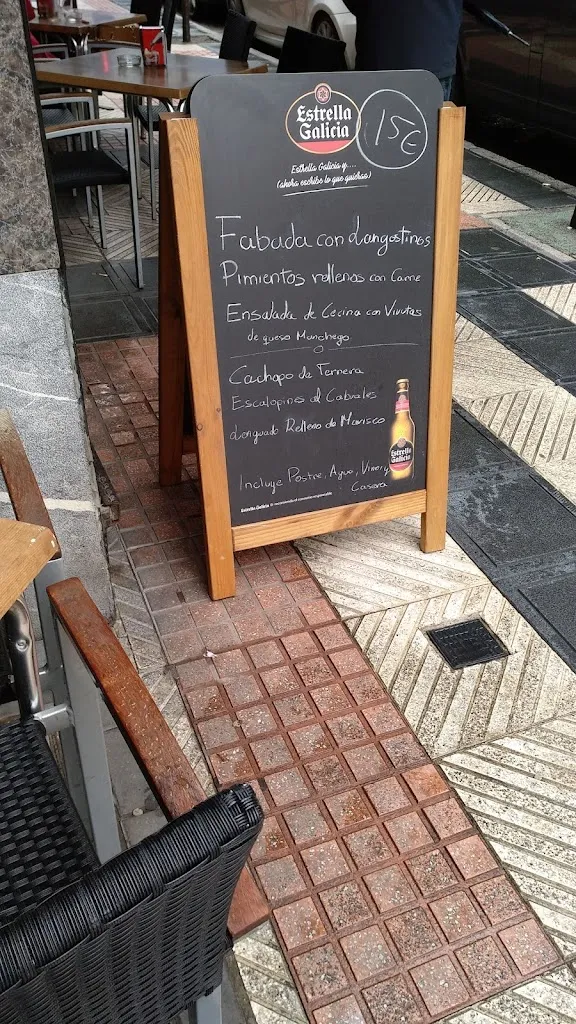 Estrella
Galicia
15€
Estrella Galicia y....
(ahora escribe lo que quieras)
Fabada con Langostinos
Pimientos rellenos con Carne
Ensalada de Cecina con Virutas
de queso Manchego
Cachopo de Ternera
Escalopines al Cabrales
Lenguado Relleno de Marisco
Incluye Postre, Agua, Vino y
Casera
Estrella
Galicia
Estrella Galicia te recomienda el consumo responsable